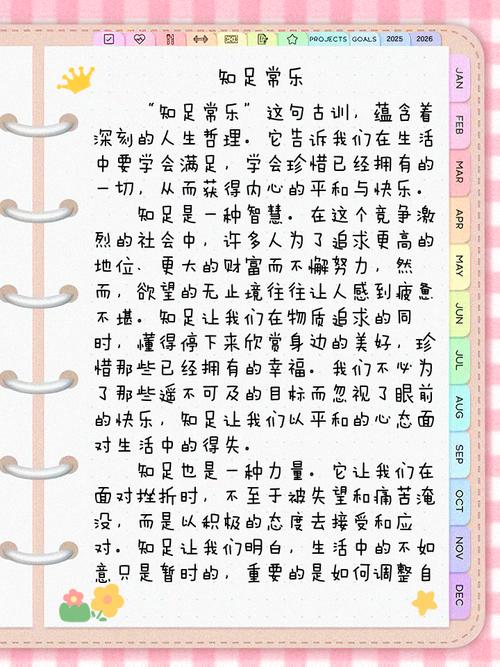 PROJECTS GOALS 2025 2026
知足常乐
“知足常乐”这句古训，蕴含着
深刻的人生哲理。它告诉我们在生活
中要学会满足，学会珍惜已经拥有的
一切，从而获得内心的平和与快乐。
知足是一种智慧。在这个竞争激
烈的社会中，许多人为了追求更高的
地位、更大的财富而不懈努力，然
而，欲望的无止境往往让人感到疲惫
不堪。知足让我们在物质追求的同
时，懂得停下来欣赏身边的美好，珍
惜那些已经拥有的幸福。我们不必为
了那些遥不可及的目标而忽视了眼前
的快乐，知足让我们以平和的心态面
对生活中的得失。
知足也是一种力量。它让我们在
面对挫折时，不至于被失望和痛苦淹
没，而是以积极的态度去接受和应
对。知足让我们明白，生活中的不如
意只是暂时的，重要的是如何调整自
JAN
FEB
MAR
APR
MAY
JUN
JUL
AUG
SEP
OCT
NOV
DEC